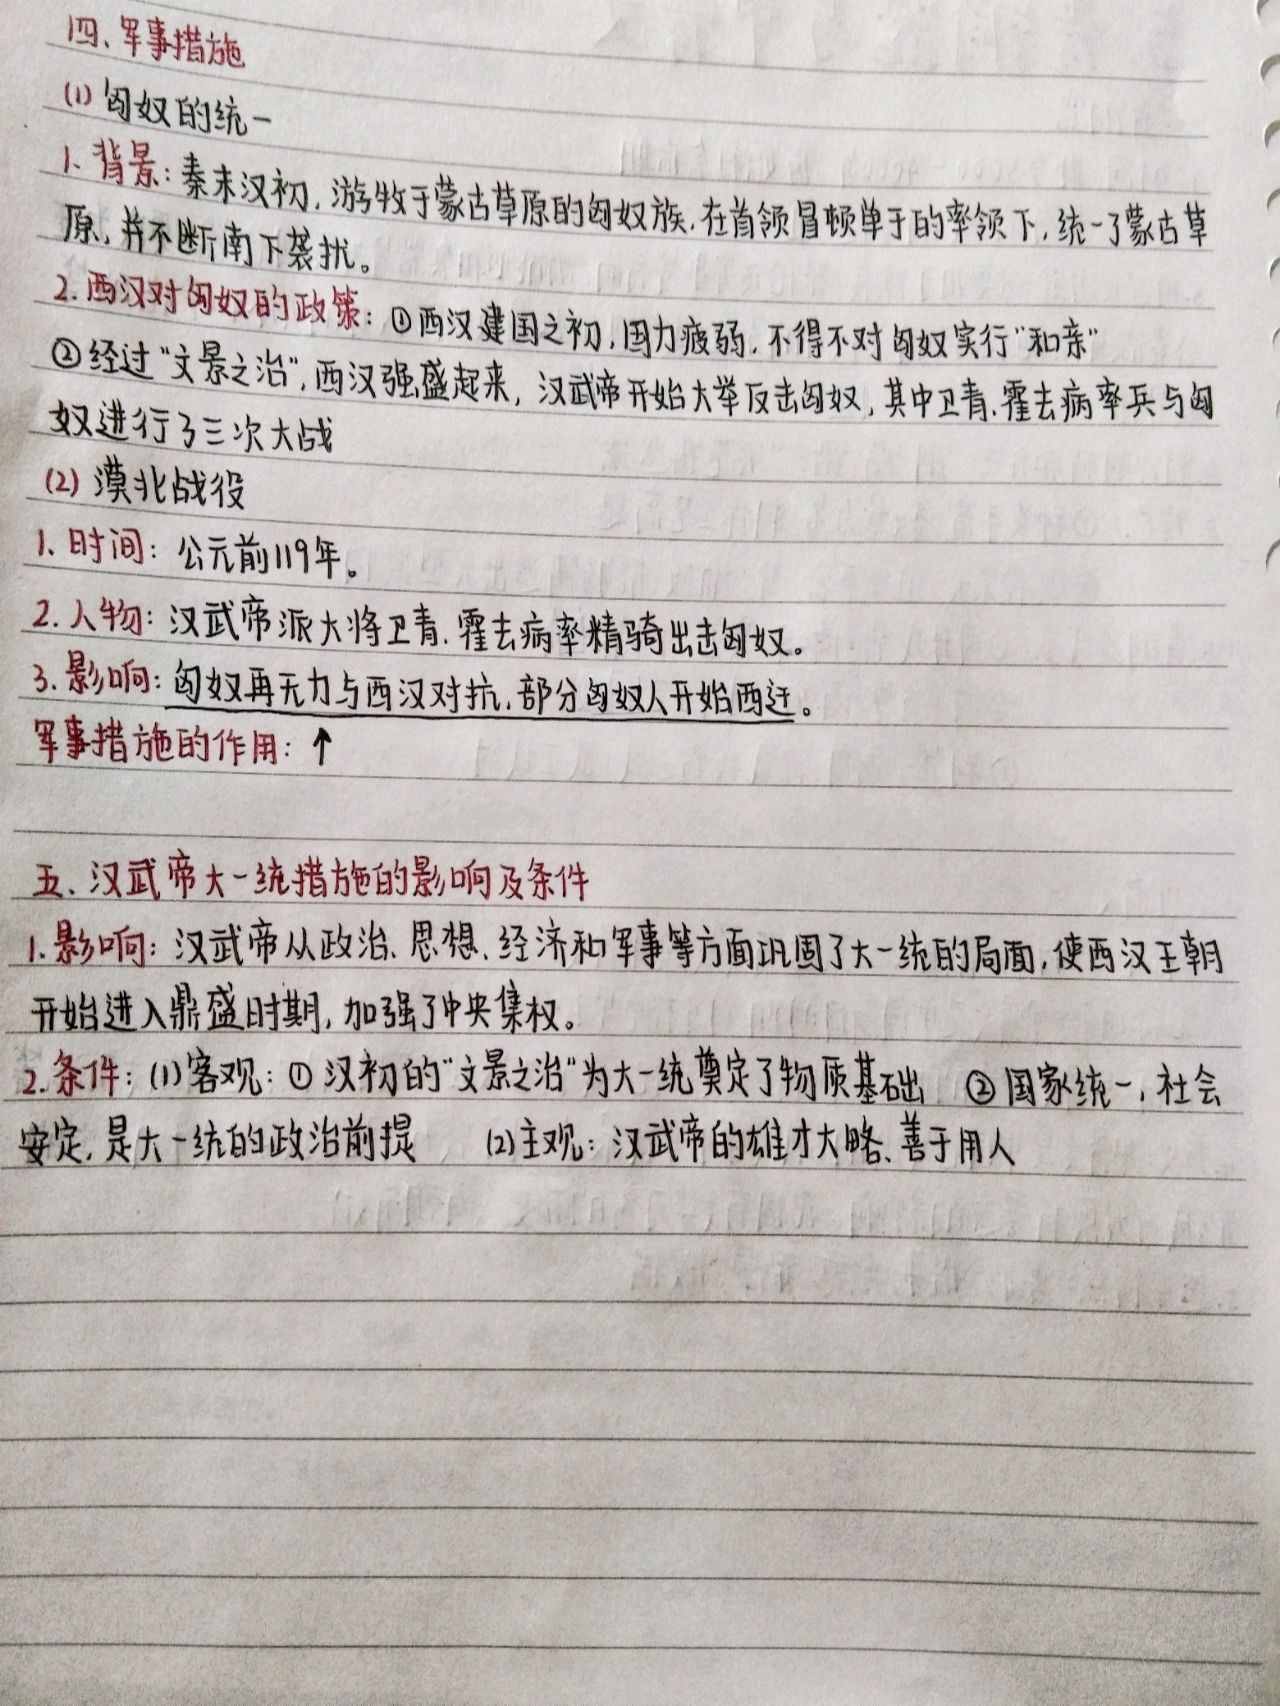 四、军事措施
(1) 匈奴的统一
1. 背景：秦末汉初，游牧于蒙古草原的匈奴族，在首领冒顿单于的率领下，统一了蒙古草
原，并不断南下袭扰。
2. 西汉对匈奴的政策：①西汉建国之初，国力疲弱，不得不对匈奴实行“和亲”
②经过“文景之治”，西汉强盛起来，汉武帝开始大举反击匈奴，其中卫青、霍去病率兵与匈
奴进行了三次大战
(2) 漠北战役
1. 时间：公元前119年。
2. 人物：汉武帝派大将卫青、霍去病率精骑出击匈奴。
3. 影响：匈奴再无力与西汉对抗，部分匈奴人开始西迁。
军事措施的作用：↑
五、汉武帝大一统措施的影响及条件
1. 影响：汉武帝从政治、思想、经济和军事等方面巩固了大一统的局面，使西汉王朝
开始进入鼎盛时期，加强了中央集权。
2. 条件：(1)客观：①汉初的“文景之治”为大一统奠定了物质基础 ②国家统一，社会
安定，是大一统的政治前提 (2)主观：汉武帝的雄才大略、善于用人